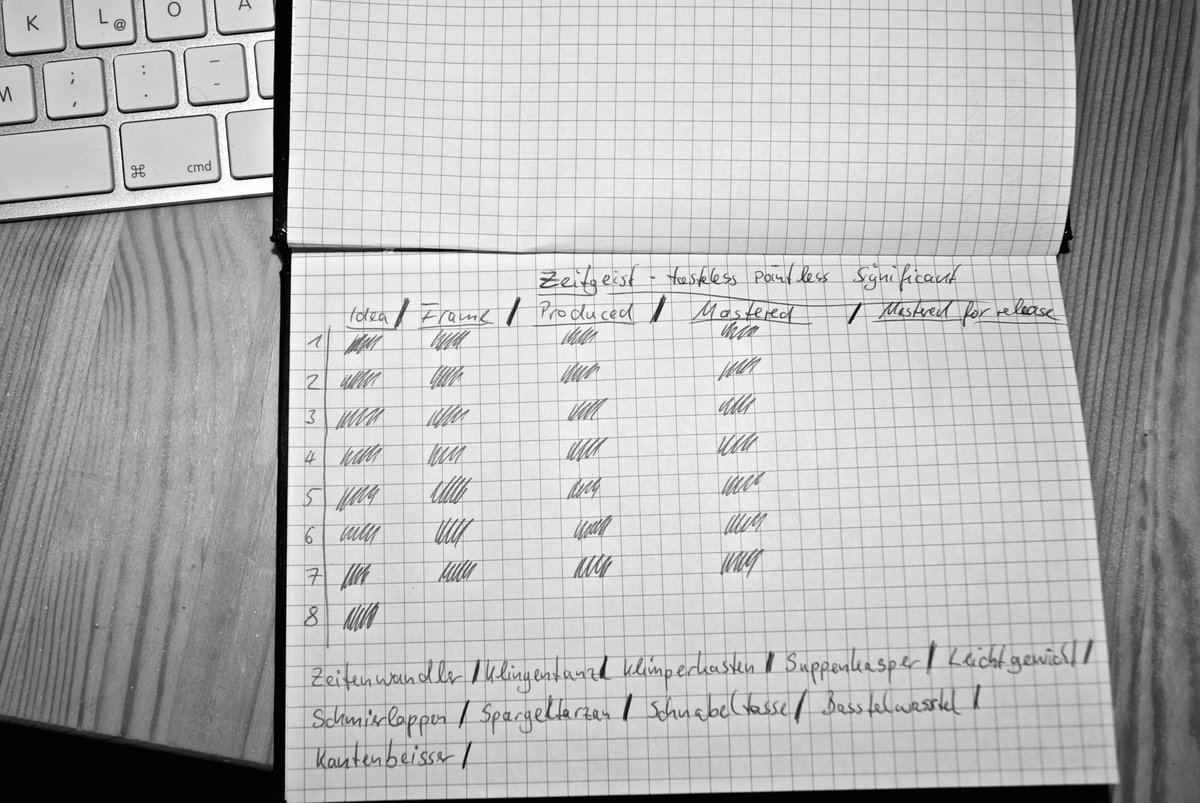 K L @ O A
M ; , : . – -
⌘ cmd
Zeitgeist - tasteless pointless significant
Idea / Frame / Produced / Mastered / Mastered for release
1
2
3
4
5
6
7
8
Zeitenwandler / Klingentanz / Klimperkasten / Suppenkasper / Leichtgewicht /
Schmierlappen / Spargeltarzan / Schnabeltasse / Basstelwasstel /
Kantenbeisser /